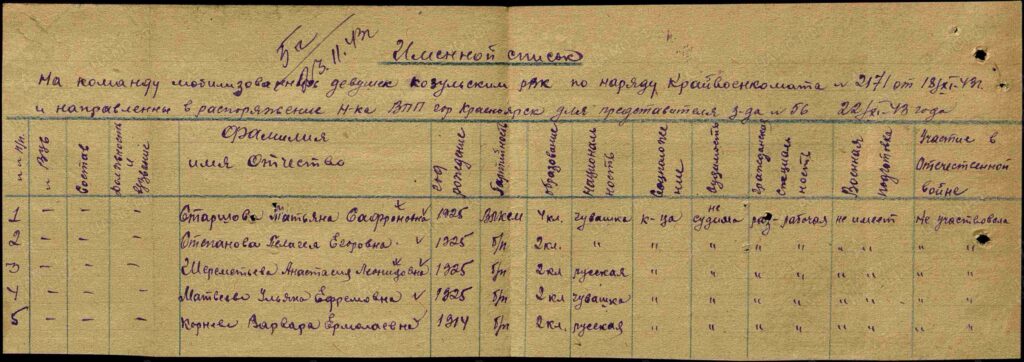 Именной список
На команду мобилизованных девушек козульским рвк по наряду Крайвоенкомата № 2171 от 18/XI-43г.
и направленны в распоряжение Н-ка ВПП гор Красноярск для представителя з-да № 56 22/XI-43 года
№ п/п № ВУС Состав Должность и звание Фамилия имя Отчество год рождение Партийность Образование Национальность Социаположение Судимость Гражданская специальность Военная подготовка Участие в Отечественной войне
1 - - - Татьяна Сафроновна 1925 ВЛКСМ 4 кл. чувашка к-ца не судима раз-рабочая не имеет Не участвовала
2 - - - Степанова Пелагея Егоровна 1925 б/п 2 кл. " " " " " " " "
3 - - - Шереметьева Анастасия Леонидовна 1925 б/п 2 кл русская " " " " " " "
4 - - - Матвеева Ульяна Ефремовна 1925 б/п 2 кл чувашка " " " " " " "
5 - - - Варвара Ермолаевна 1914 б/п 2 кл. русская " " " " " " "